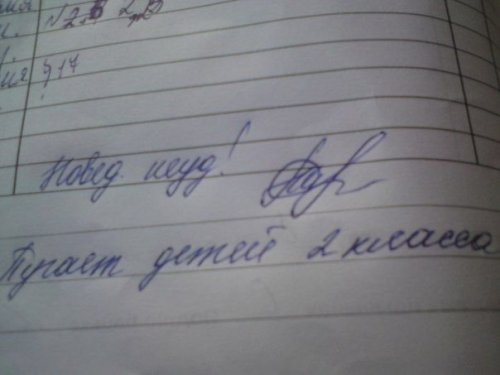 §17
Повед. неуд!
Пугает детей 2 класса